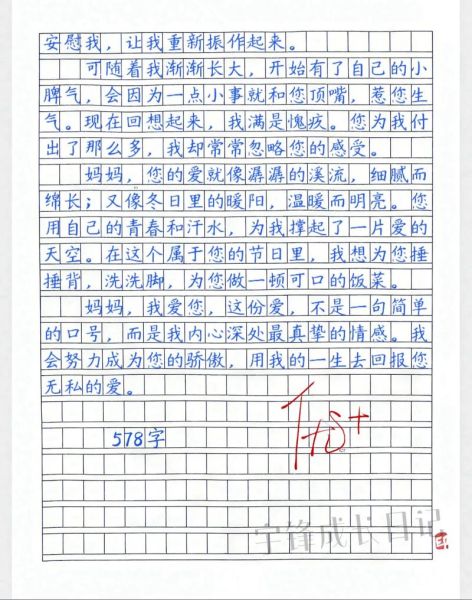 安慰我，让我重新振作起来。
可随着我渐渐长大，开始有了自己的小
脾气，会因为一点小事就和您顶嘴，惹您生
气。现在回想起来，我满是愧疚。您为我付
出了那么多，我却常常忽略您的感受。
妈妈，您的爱就像潺潺的溪流，细腻而
绵长；又像冬日里的暖阳，温暖而明亮。您
用自己的青春和汗水，为我撑起了一片爱的
天空。在这个属于您的节日里，我想为您捶
捶背，洗洗脚，为您做一顿可口的饭菜。
妈妈，我爱您，这份爱，不是一句简单
的口号，而是我内心深处最真挚的情感。我
会努力成为您的骄傲，用我的一生去回报您
无私的爱。
578字
宇锋成长日记